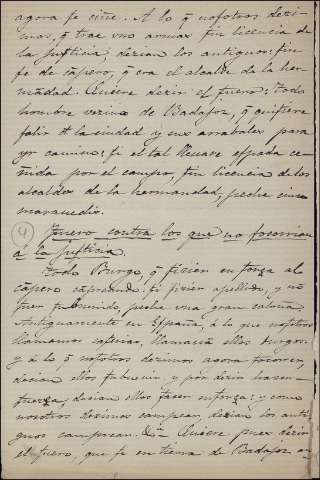 agora se ciñe. A lo q̃ nosotros dezi-
mos, q̃ trae vno armas sin licencia de
la justicia, dezian los antiguos: sin
fe de sapero, q̃ era el alcalde de la her-
mãdad. Quiere dezir el fuero: todo
hombre vezino de Badajoz, q̃ quisiere
salir de la ciudad y sus arrabales para
yr camino: si el tal lleuare espada ce-
ñida por el campo, sin licencia de los
alcaldes de la hermandad, peche cinco
marauedis.
(4) Fuero contra los que no socorrieren
á la justicia.
Todo Burgo, q̃ fizien enforza al
sapero si fizier apellido, y nõ
fuer peche vna gran caloña
Antiguamente en España, á lo que nosotros
llamamos llamauã ellos burgos.
y á lo q̃ nosotros dezimos agora socorrer,
dezian ellos y por dezir hazen
fuerza, dezian ellos fazen enforza: y como
nosotros dezimos campean, dezian los anti-
guos Quiere pues dezir
el fuero, que si en tierra de Badajoz